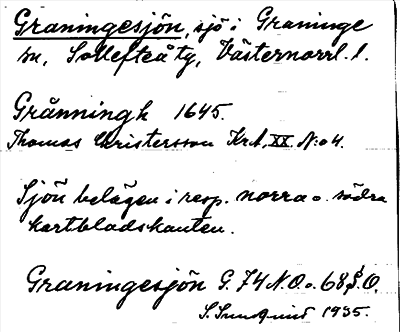 Graningesjön, sjö i Graninge
sn, Sollefteå tg, Västernorrl. l.
Grånningh 1645.
Thomas Christersson Krt, XX N:o 4.
Sjön belägen i resp. norra o. södra
kartbladskanten.
Graningesjön G. 74 N.O. o. 68 S.O.
1935.